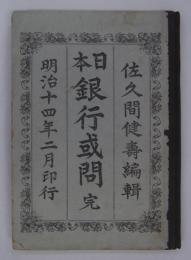 佐久間健壽編輯
日本
銀行或問 完
明治十四年二月印行